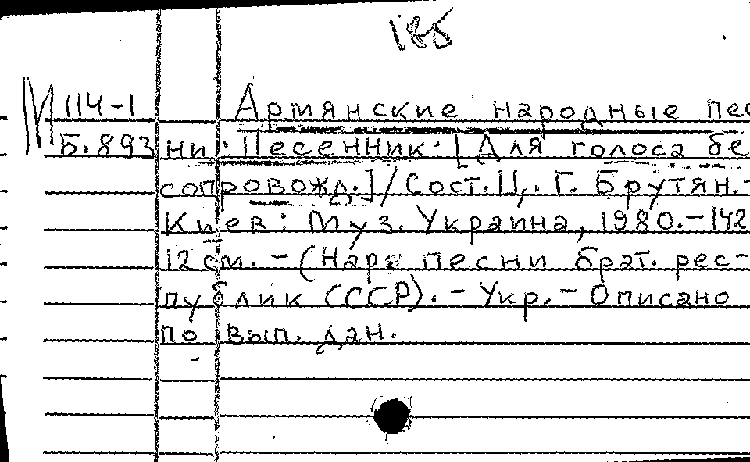 185
М 114-1 Армянские народные пес
Б.893 ни: Песенник. [Для голоса бе
сопровожд.]/Сост. Ц. Г. Брутян.-
Киев: Муз. Украина, 1980.-142
12 см. - (Нар. песни брат. рес-
публик СССР). - Укр. - Описано
по вып. дан.